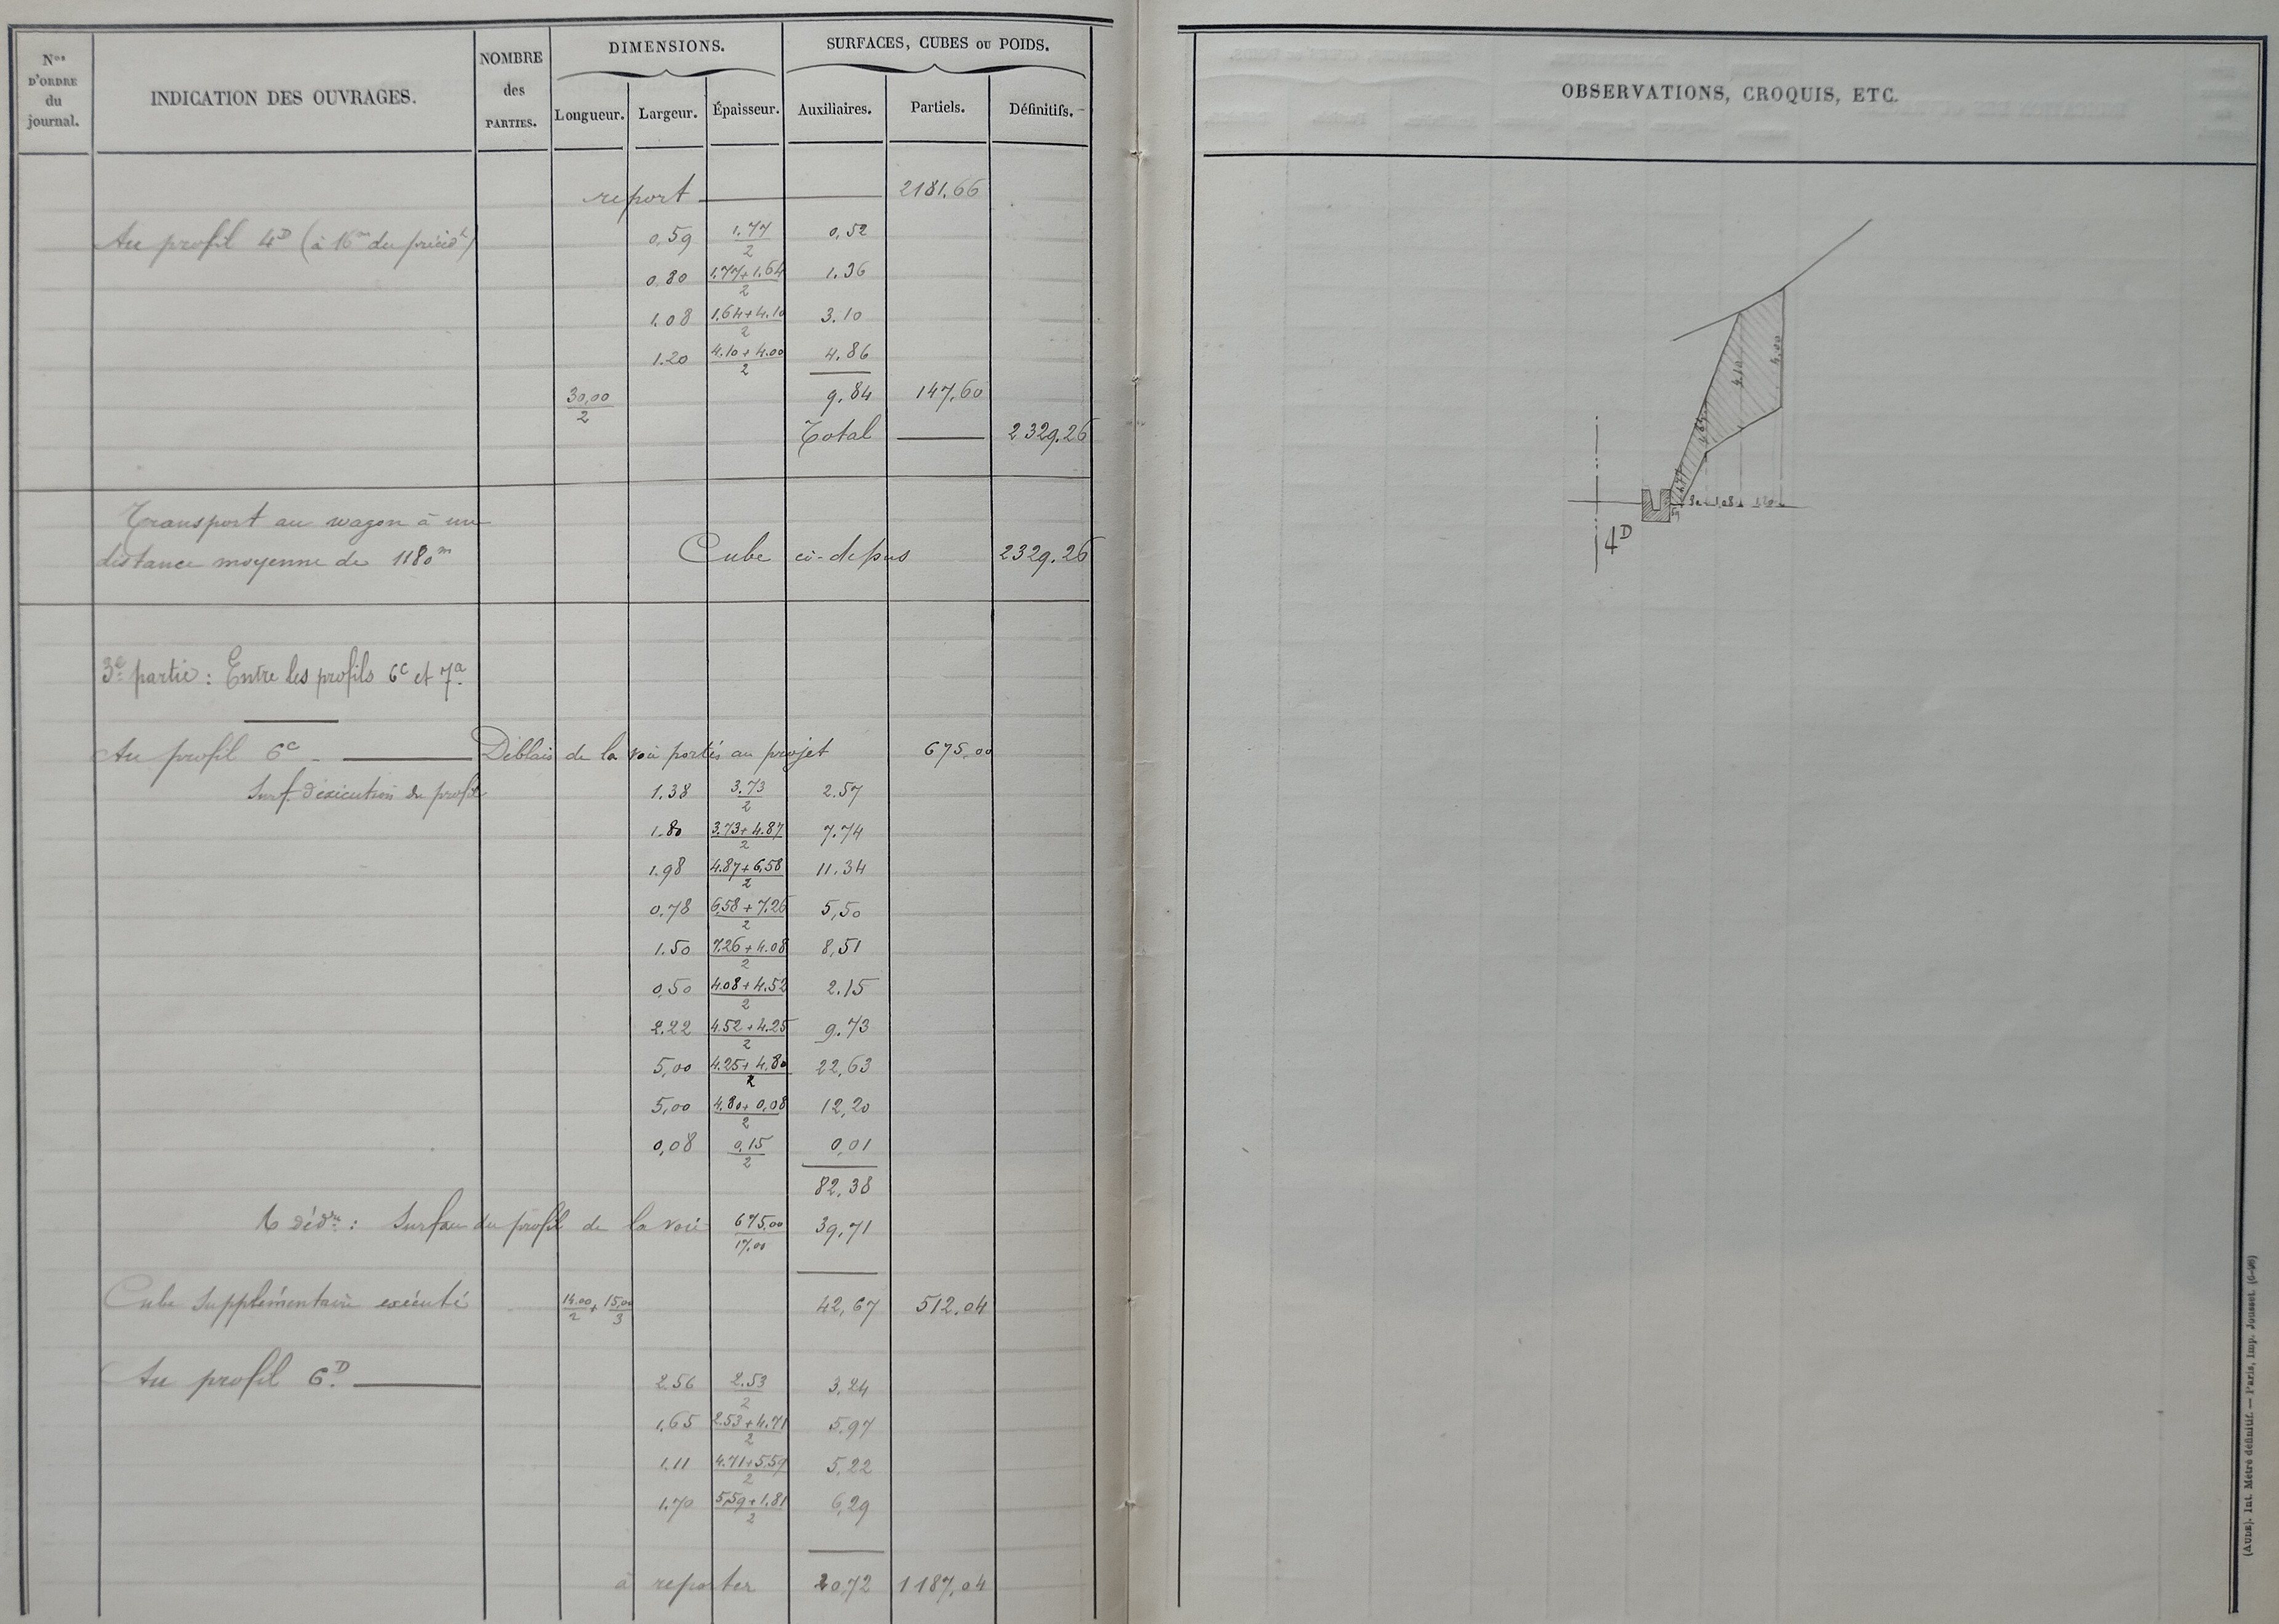 Nos D'ORDRE du journal.
INDICATION DES OUVRAGES.
NOMBRE des PARTIES.
DIMENSIONS.
Longueur. Largeur. Épaisseur.
SURFACES, CUBES OU POIDS.
Auxiliaires. Partiels. Définitifs.
report 2181.66
Au profil 4D (à 16m du précédt) 0,59 1.77/2 0,52
0.80 1.77+1.64/2 1.36
1.08 1.64+4.10/2 3.10
1.20 4.10+4.00/2 4.86
30,00/2 9.84 147.60
Total 2329.26
Transport au wagon à une
distance moyenne de 1180m Cube ci-dessus 2329.26
3e partie : Entre les profils 6c et 7a
Au profil 6c Déblais de la voie portés au projet 675,00
Surf. d'exécution du profil 1.38 3.73/2 2.57
1.80 3.73+4.87/2 7.74
1.98 4.87+6,58/2 11.34
0.78 6,58+7.26/2 5,50
1.50 7.26+4.08/2 8,51
0,50 4.08+4.52/2 2.15
2.22 4.52+4.25/2 9.73
5,00 4.25+4.80/2 22,63
5,00 4.80+0,08/2 12,20
0,08 0,15/2 0,01
82.38
A dédre : Surface du profil de la voie 675,00/17.00 39,71
Cube supplémentaire exécuté 14.00/2 + 15,00/3 42,67 512.04
Au profil 6D. 2.56 2.53/2 3.24
1,65 2.53+4.71/2 5.97
1.11 4.71+5.59/2 5,22
1.70 5,59+1.81/2 6,29
à reporter 20,72 1187,04
OBSERVATIONS, CROQUIS, ETC.
4,00
4,10
1,64
1,08 1,20
59
4D
(AUDE). Int. Métré définitif. — Paris, Imp. Jousset. (6-96)